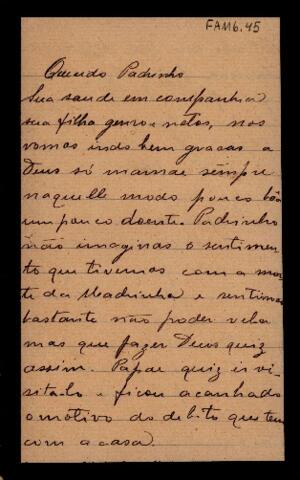 FAM6.45
Querido Padrinho
Sua saude em companhia
sua filha genro e netos, nos
vomos indo bem graças a
Deus só mamãe sempre
naquelle modo pouco bôa
um pouco doente. Padrinho
não imaginas o sentimen-
to que tivemos com a mor-
te da Madrinha e sentimos
bastante não poder vela
mas que fazer Deus quiz
assim. Papae quiz ir vi-
sitalo e ficou acanhado
o motivo do debito que tem
com a casa.